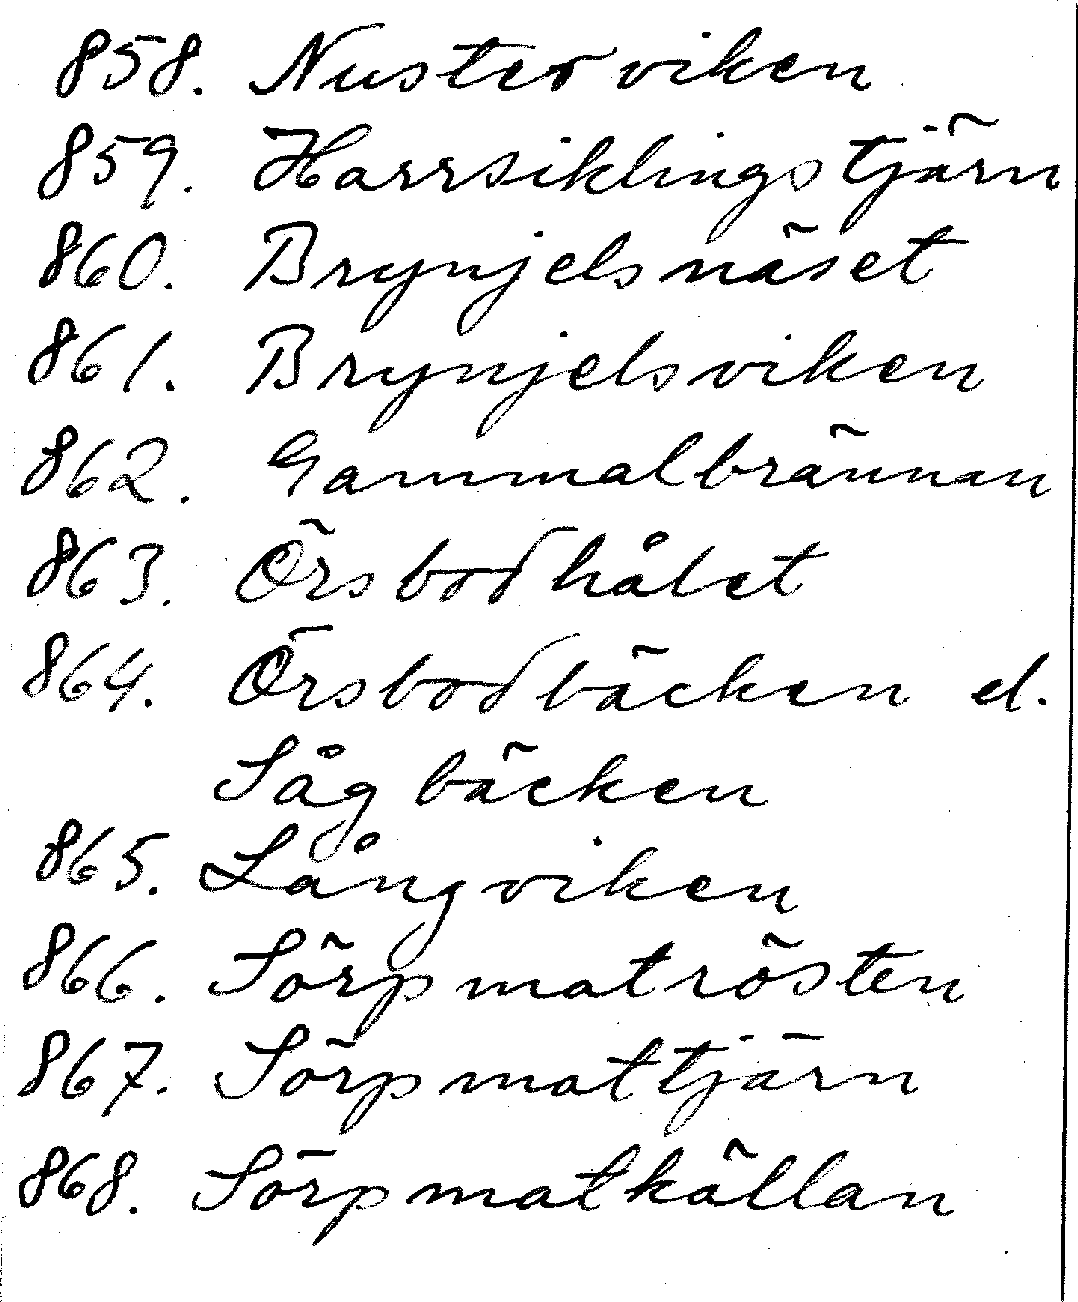 858. Nusterviken
859. Harrsiklingstjärn
860. Brynjelsnäset
861. Brynjelsviken
862. Gammalbrännan
863. Örsbodhålet
864. Örsbodbäcken el.
Sågbäcken
865. Långviken
866. Sörpmatrösten
867. Sörpmattjärn
868. Sörpmatkällan